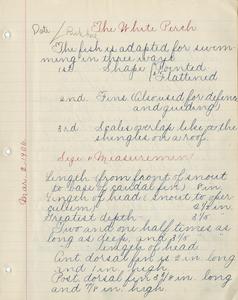 Date
The White Perch
The fish is adapted for swim-
ming in three ways
1st Shape { Pointed
Flattened
2nd Fins (Also used for defence
and guiding)
3rd Scales overlap like the
shingles on a roof.
Size & Measurement
Mar. 2, 1906
Length (from front of snout
to base of caudal fin) 8 in.
Length of head (snout to oper-
culum)
Greatest depth
Two and one half times as
long as deep, and 3 1/5
length of head
Ant dorsal fin is 2 in. long
and 1 in. high
Post dorsal fin long
and 7/8 in. high